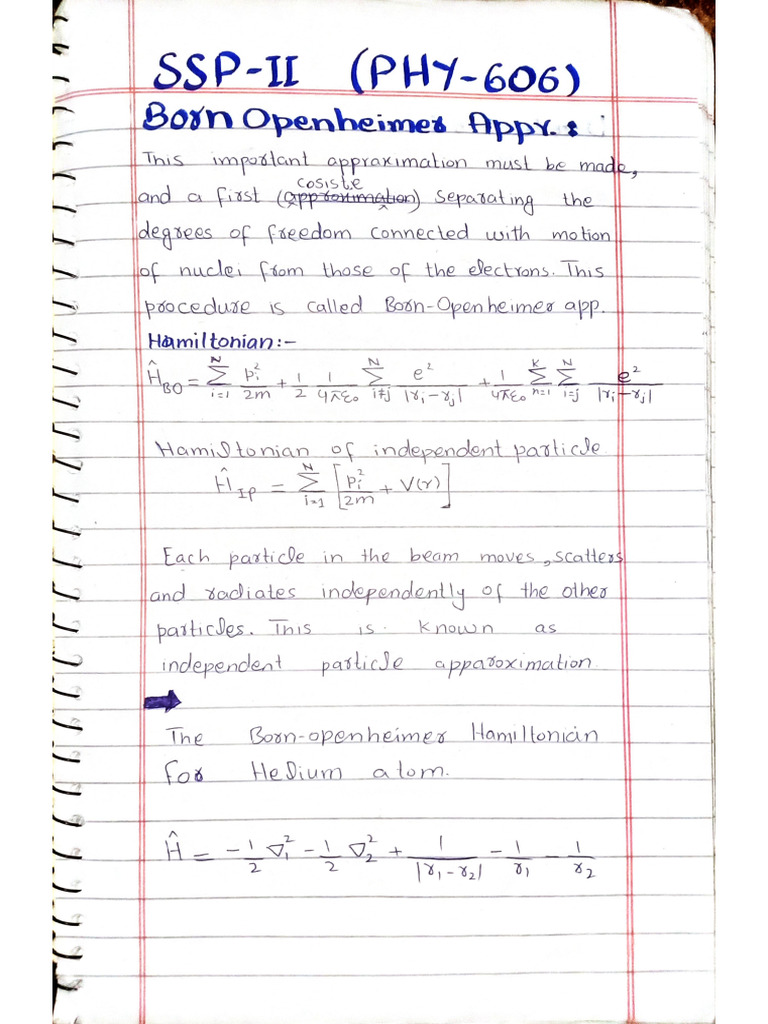 SSP-II (PHY-606)
Born Openheimer Appr. :
This important appraximation must be made,
cosiste
and a first (approximation) separating the
degrees of freedom connected with motion
of nuclei from those of the electrons. This
procedure is called Born-Openheimer app.
Hamiltonian:-
Ĥ_BO = Σ_{i=1}^{N} p_i²/2m + 1/2 1/4πε₀ Σ_{i≠j}^{N} e²/|r_i - r_j| + 1/4πε₀ Σ_{n=1}^{K} Σ_{i=j}^{N} e²/|r_i - r_j|
Hamiltonian of independent particle
Ĥ_IP = Σ_{i=1}^{N} [p_i²/2m + V(r)]
Each particle in the beam moves, scatters
and radiates independently of the other
particles. This is known as
independent particle apparoximation
The Born-openheimer Hamiltonian
for Helium atom.
Ĥ = -1/2 ∇₁² - 1/2 ∇₂² + 1/|r₁ - r₂| - 1/r₁ - 1/r₂